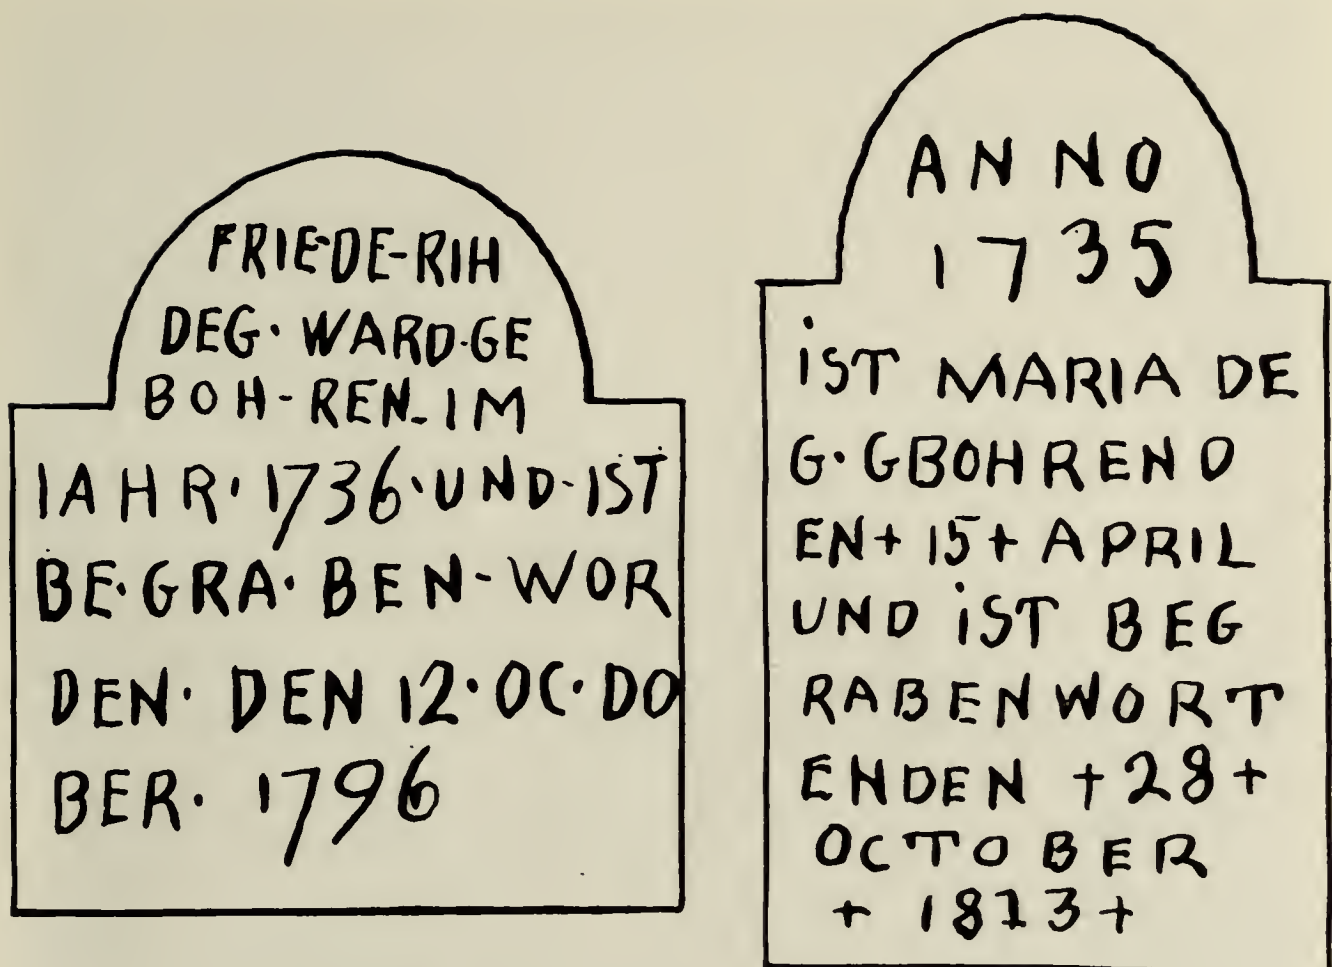 FRIE-DE-RIH
DEG· WARD·GE
BOH-REN-IM
IAHR· 1736·UND-IST
BE·GRA·BEN-WOR
DEN· DEN 12·OC·DO
BER· 1796
ANNO
1735
iST MARIA DE
G·GBOHREN D
EN+15+APRIL
UND iST BEG
RABENWORT
ENDEN +28+
OCTOBER
+ 1813+